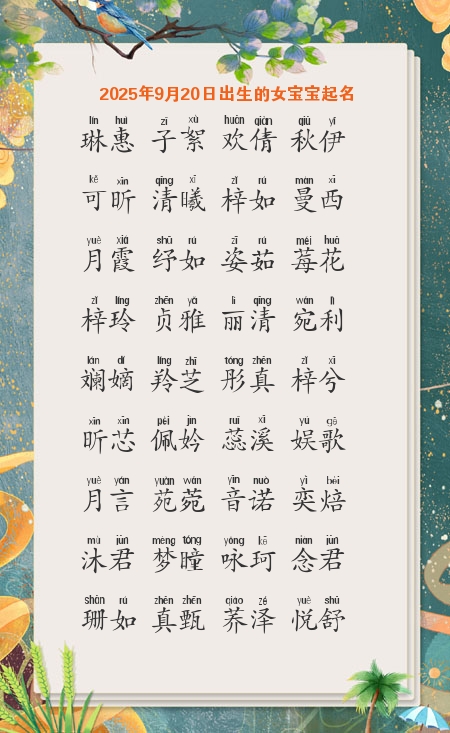 2025年9月20日出生的女宝宝起名
lín huì zǐ xù huān qiàn qiū yī
琳惠 子絮 欢倩 秋伊
kě xīn qīng xī zǐ rú màn xī
可昕 清曦 梓如 曼西
yuè xiá shū rú zī rú méi huā
月霞 纾如 姿茹 莓花
zǐ líng zhēn yǎ lì qīng wǎn lì
梓玲 贞雅 丽清 宛利
lán dí líng zhī tóng zhēn zǐ xī
斓嫡 羚芝 彤真 梓兮
xīn xīn pèi jìn ruǐ xī yú gē
昕芯 佩妗 蕊溪 娱歌
yuè yán yuàn wǎn yīn nuò yì bèi
月言 苑菀 音诺 奕焙
mù jūn mèng tóng yǒng kē niàn jūn
沐君 梦瞳 咏珂 念君
shān rú zhēn zhēn qiáo zé yuè shū
珊如 真甄 荞泽 悦舒